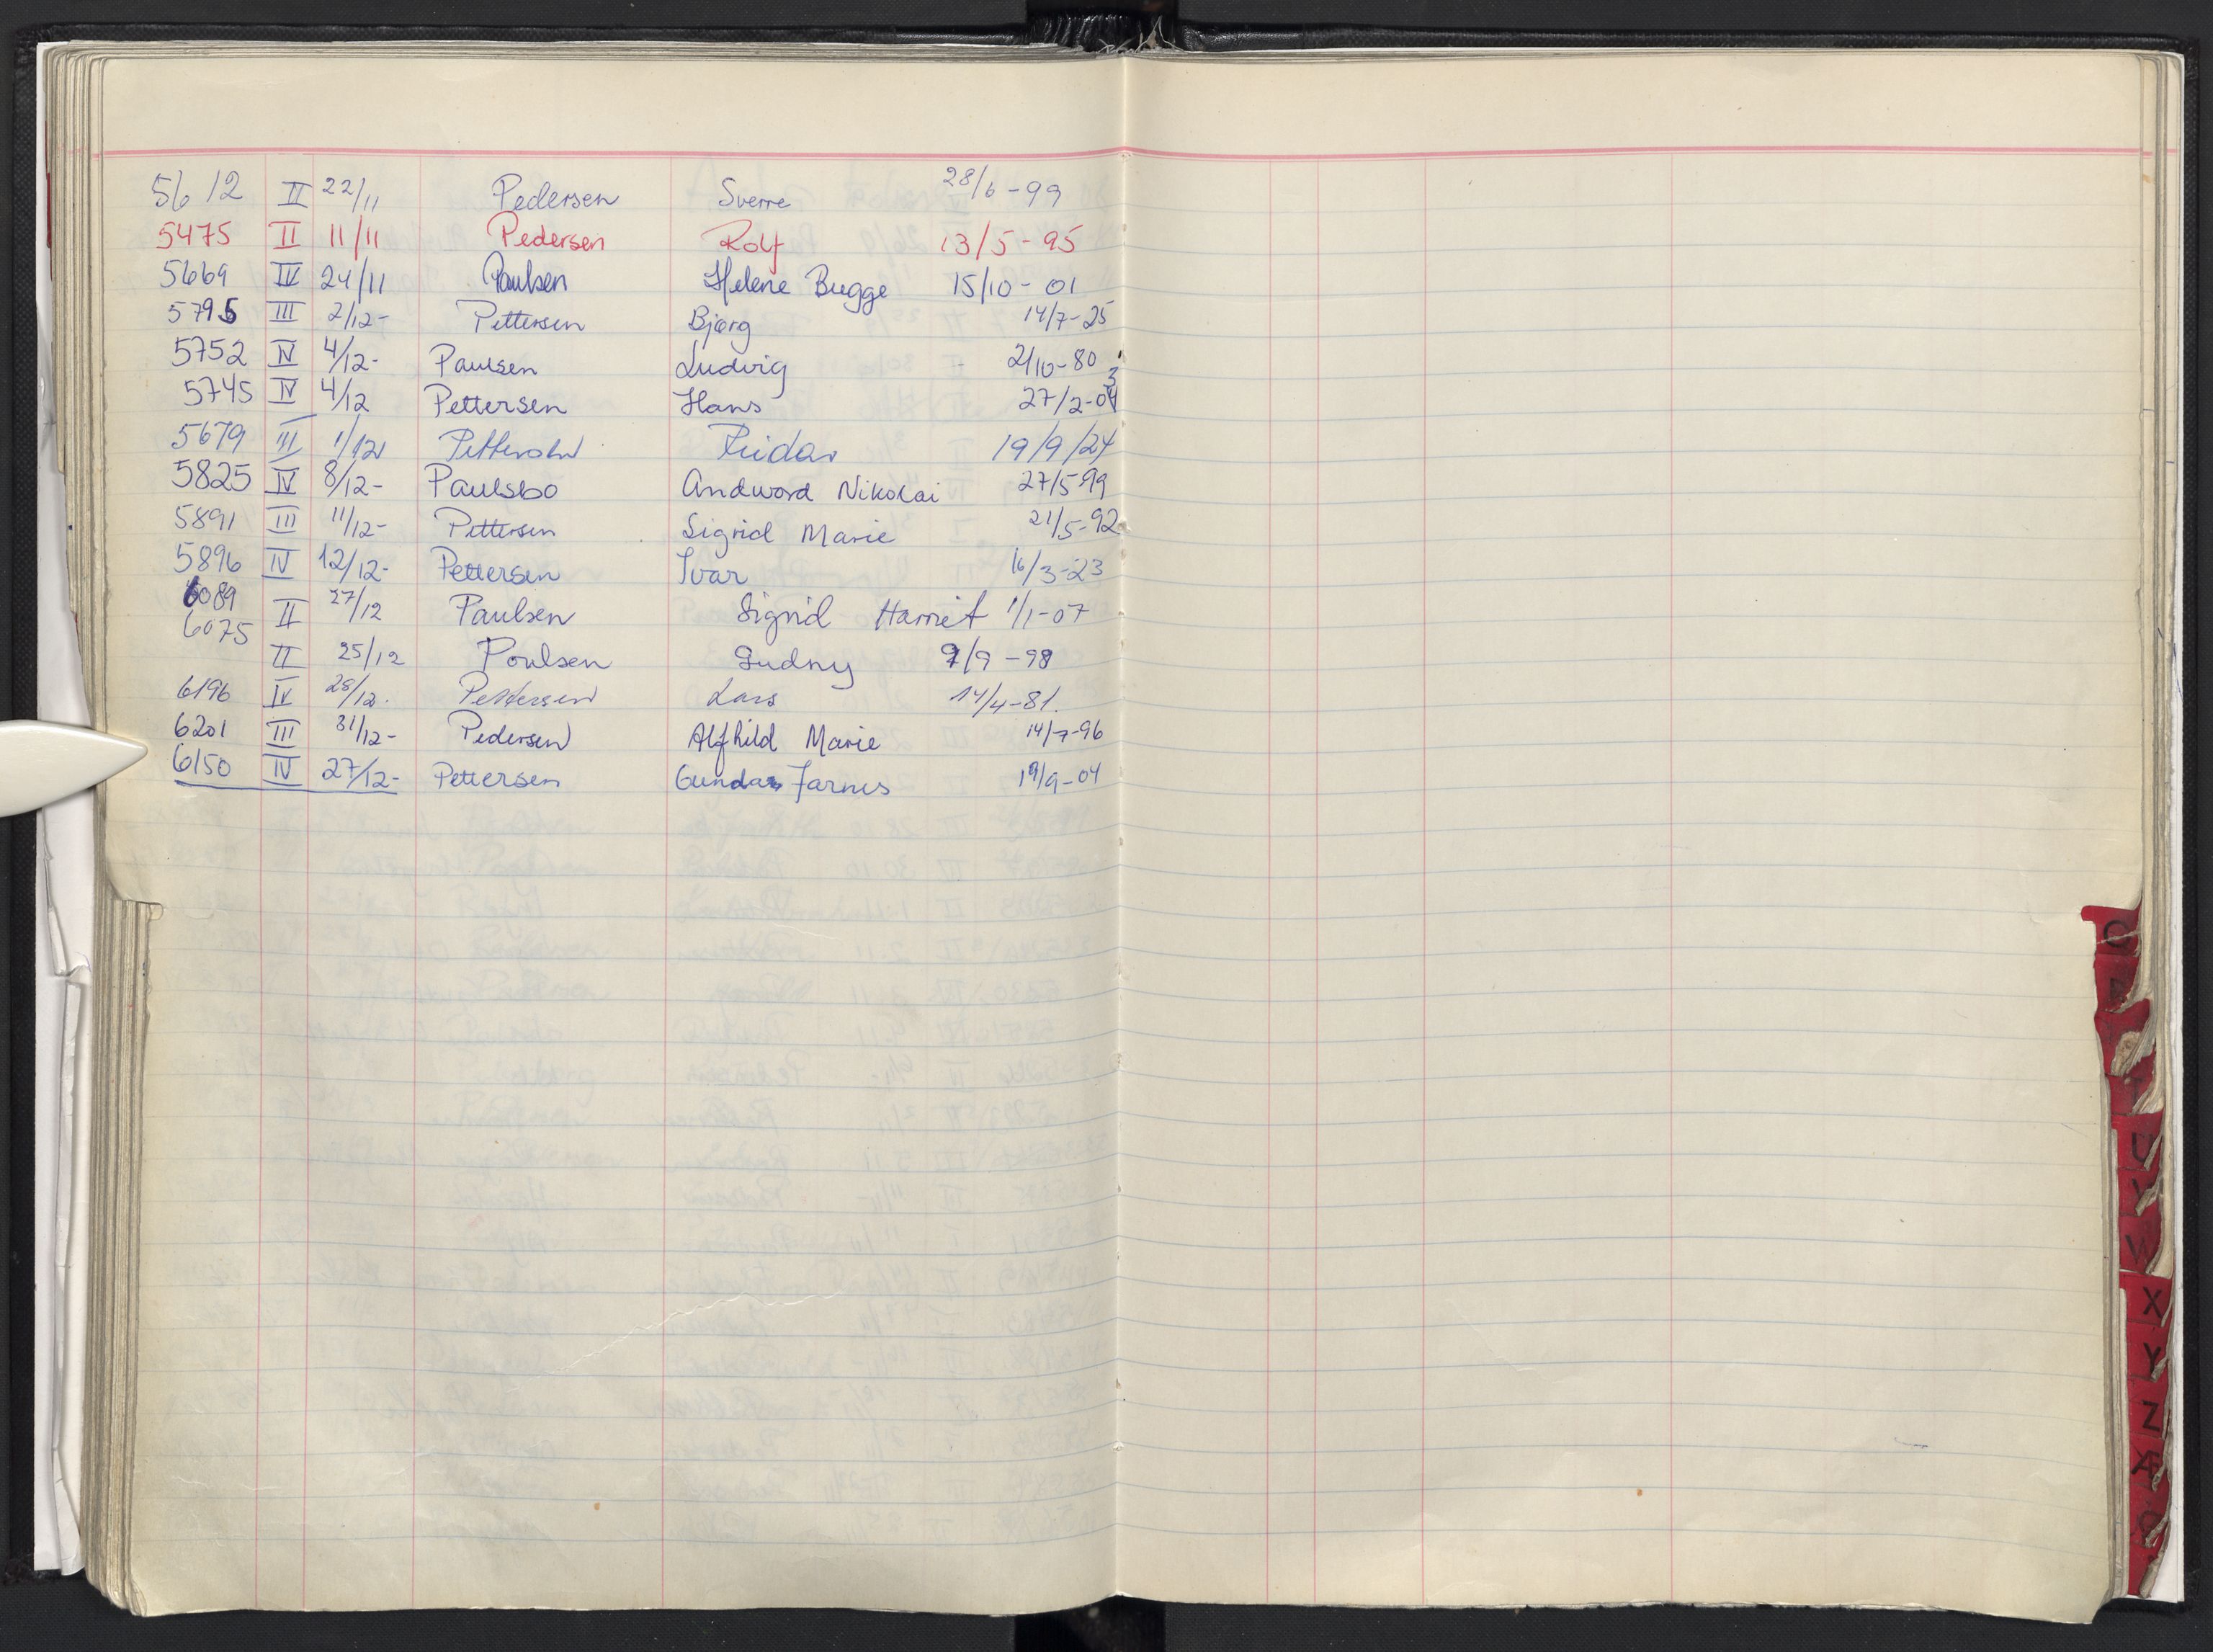 5612 II 22/11 Pedersen Sverre 28/6-99
5475 II 11/11 Pedersen Rolf 13/5-95
5669 IV 24/11 Paulsen Helene Bugge 15/10-01
5795 III 2/12- Pettersen Bjørg 14/7-25
5752 IV 4/12- Paulsen Ludvig 2/10-80
5745 IV 4/12 Pettersen Hans 27/2-04 3
5679 III 1/12 Pettersen Reidar 19/9/24
5825 IV 8/12- Paulsbo Andword Nikolai 27/5-99
5891 III 11/12- Pettersen Sigrid Marie 21/5-92
5896 IV 12/12- Pettersen Ivar 16/3-23
6089 II 27/12 Paulsen Sigrid Harriet 1/1-07
6075 II 25/12 Poulsen Gudny 9/9-98
6196 IV 28/12. Pettersen Lars 14/4-81.
6201 III 31/12- Pedersen Alfhild Marie 14/7-96
6150 IV 27/12- Pettersen Gundar Jarnes 19/9-04
O
U
V
W
X
Y
Z
Æ
Ø